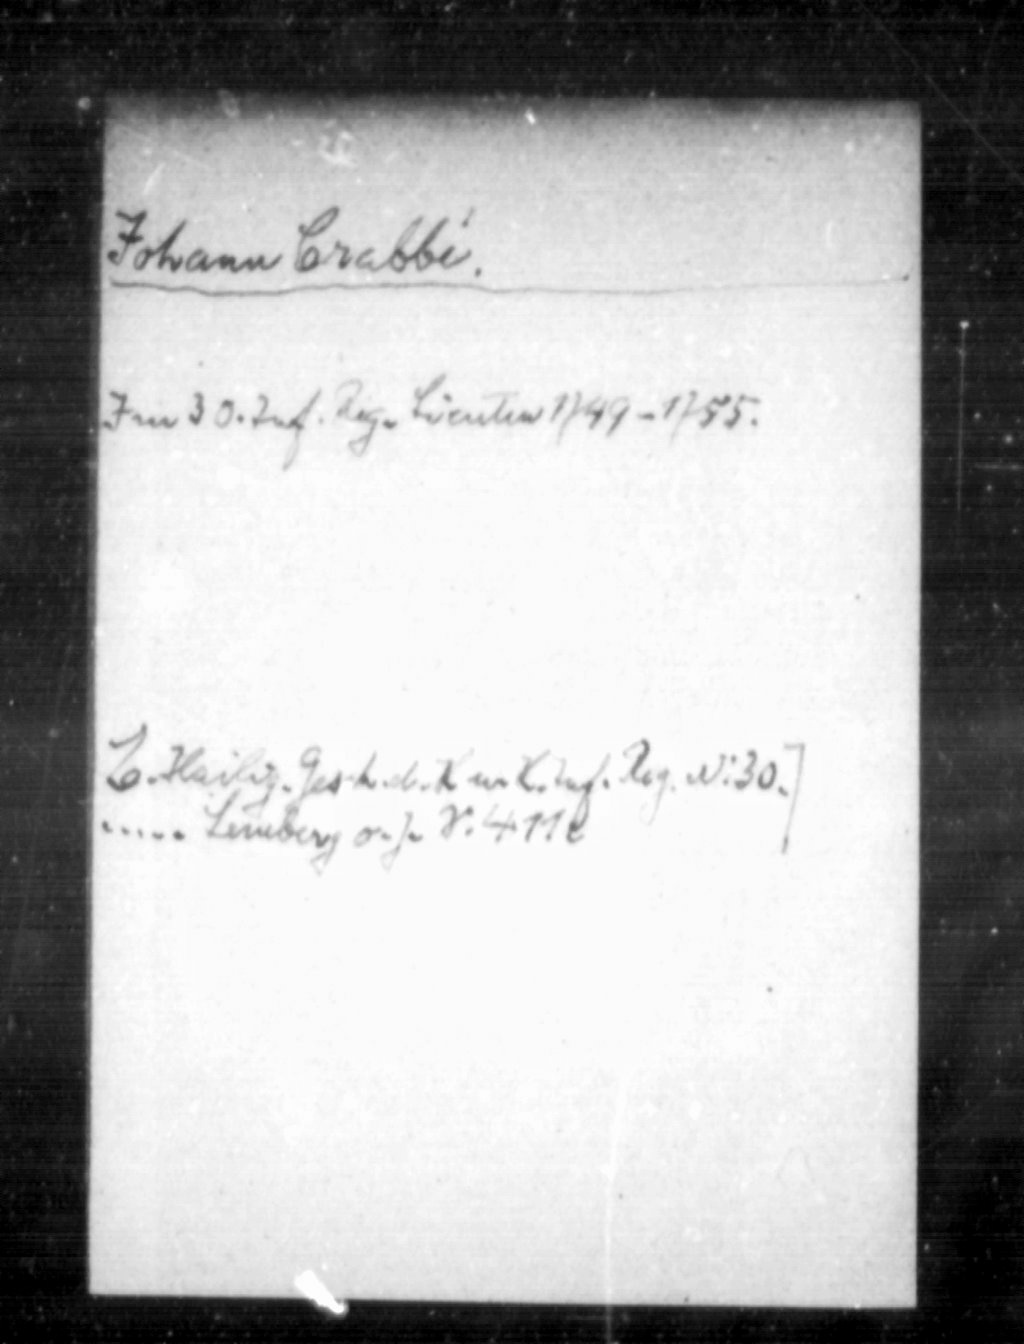 Johann Crabbé.
Im 30. Inf. Reg. Lieuten 1749-1755.
E. Hailig. Gesch. d. K u. K. Inf. Reg. N: 30.
..... Lemberg o. J. S. 411